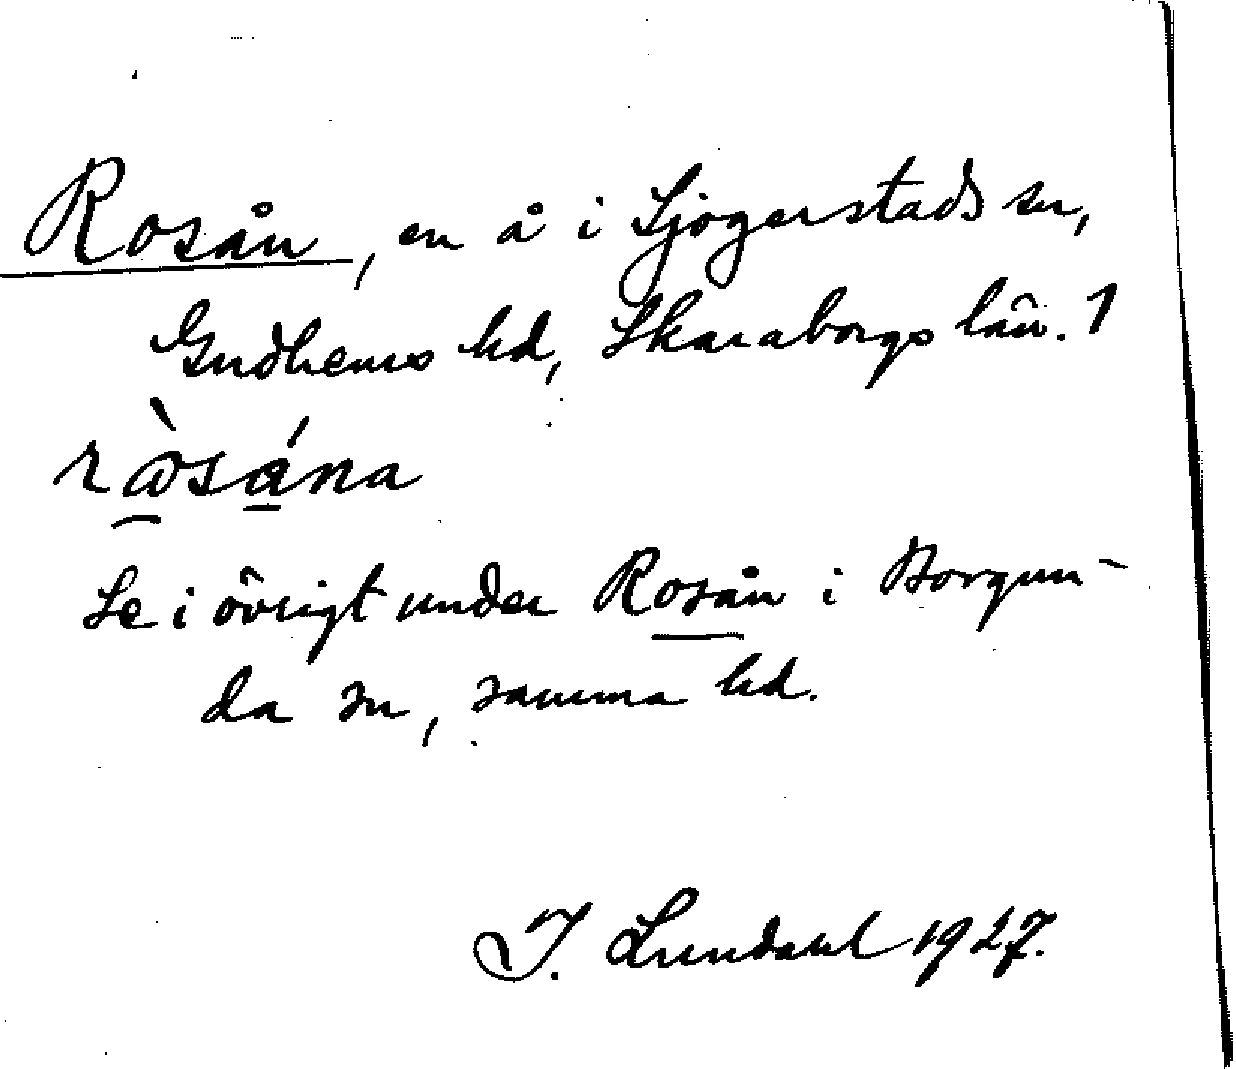 Rosån, en å i Sjogerstads sn,
Gudhems hd, Skaraborgs län. 1
Se i övrigt under Rosån i Borgun-
da sn, samma hd.
I. Lundahl 1927.